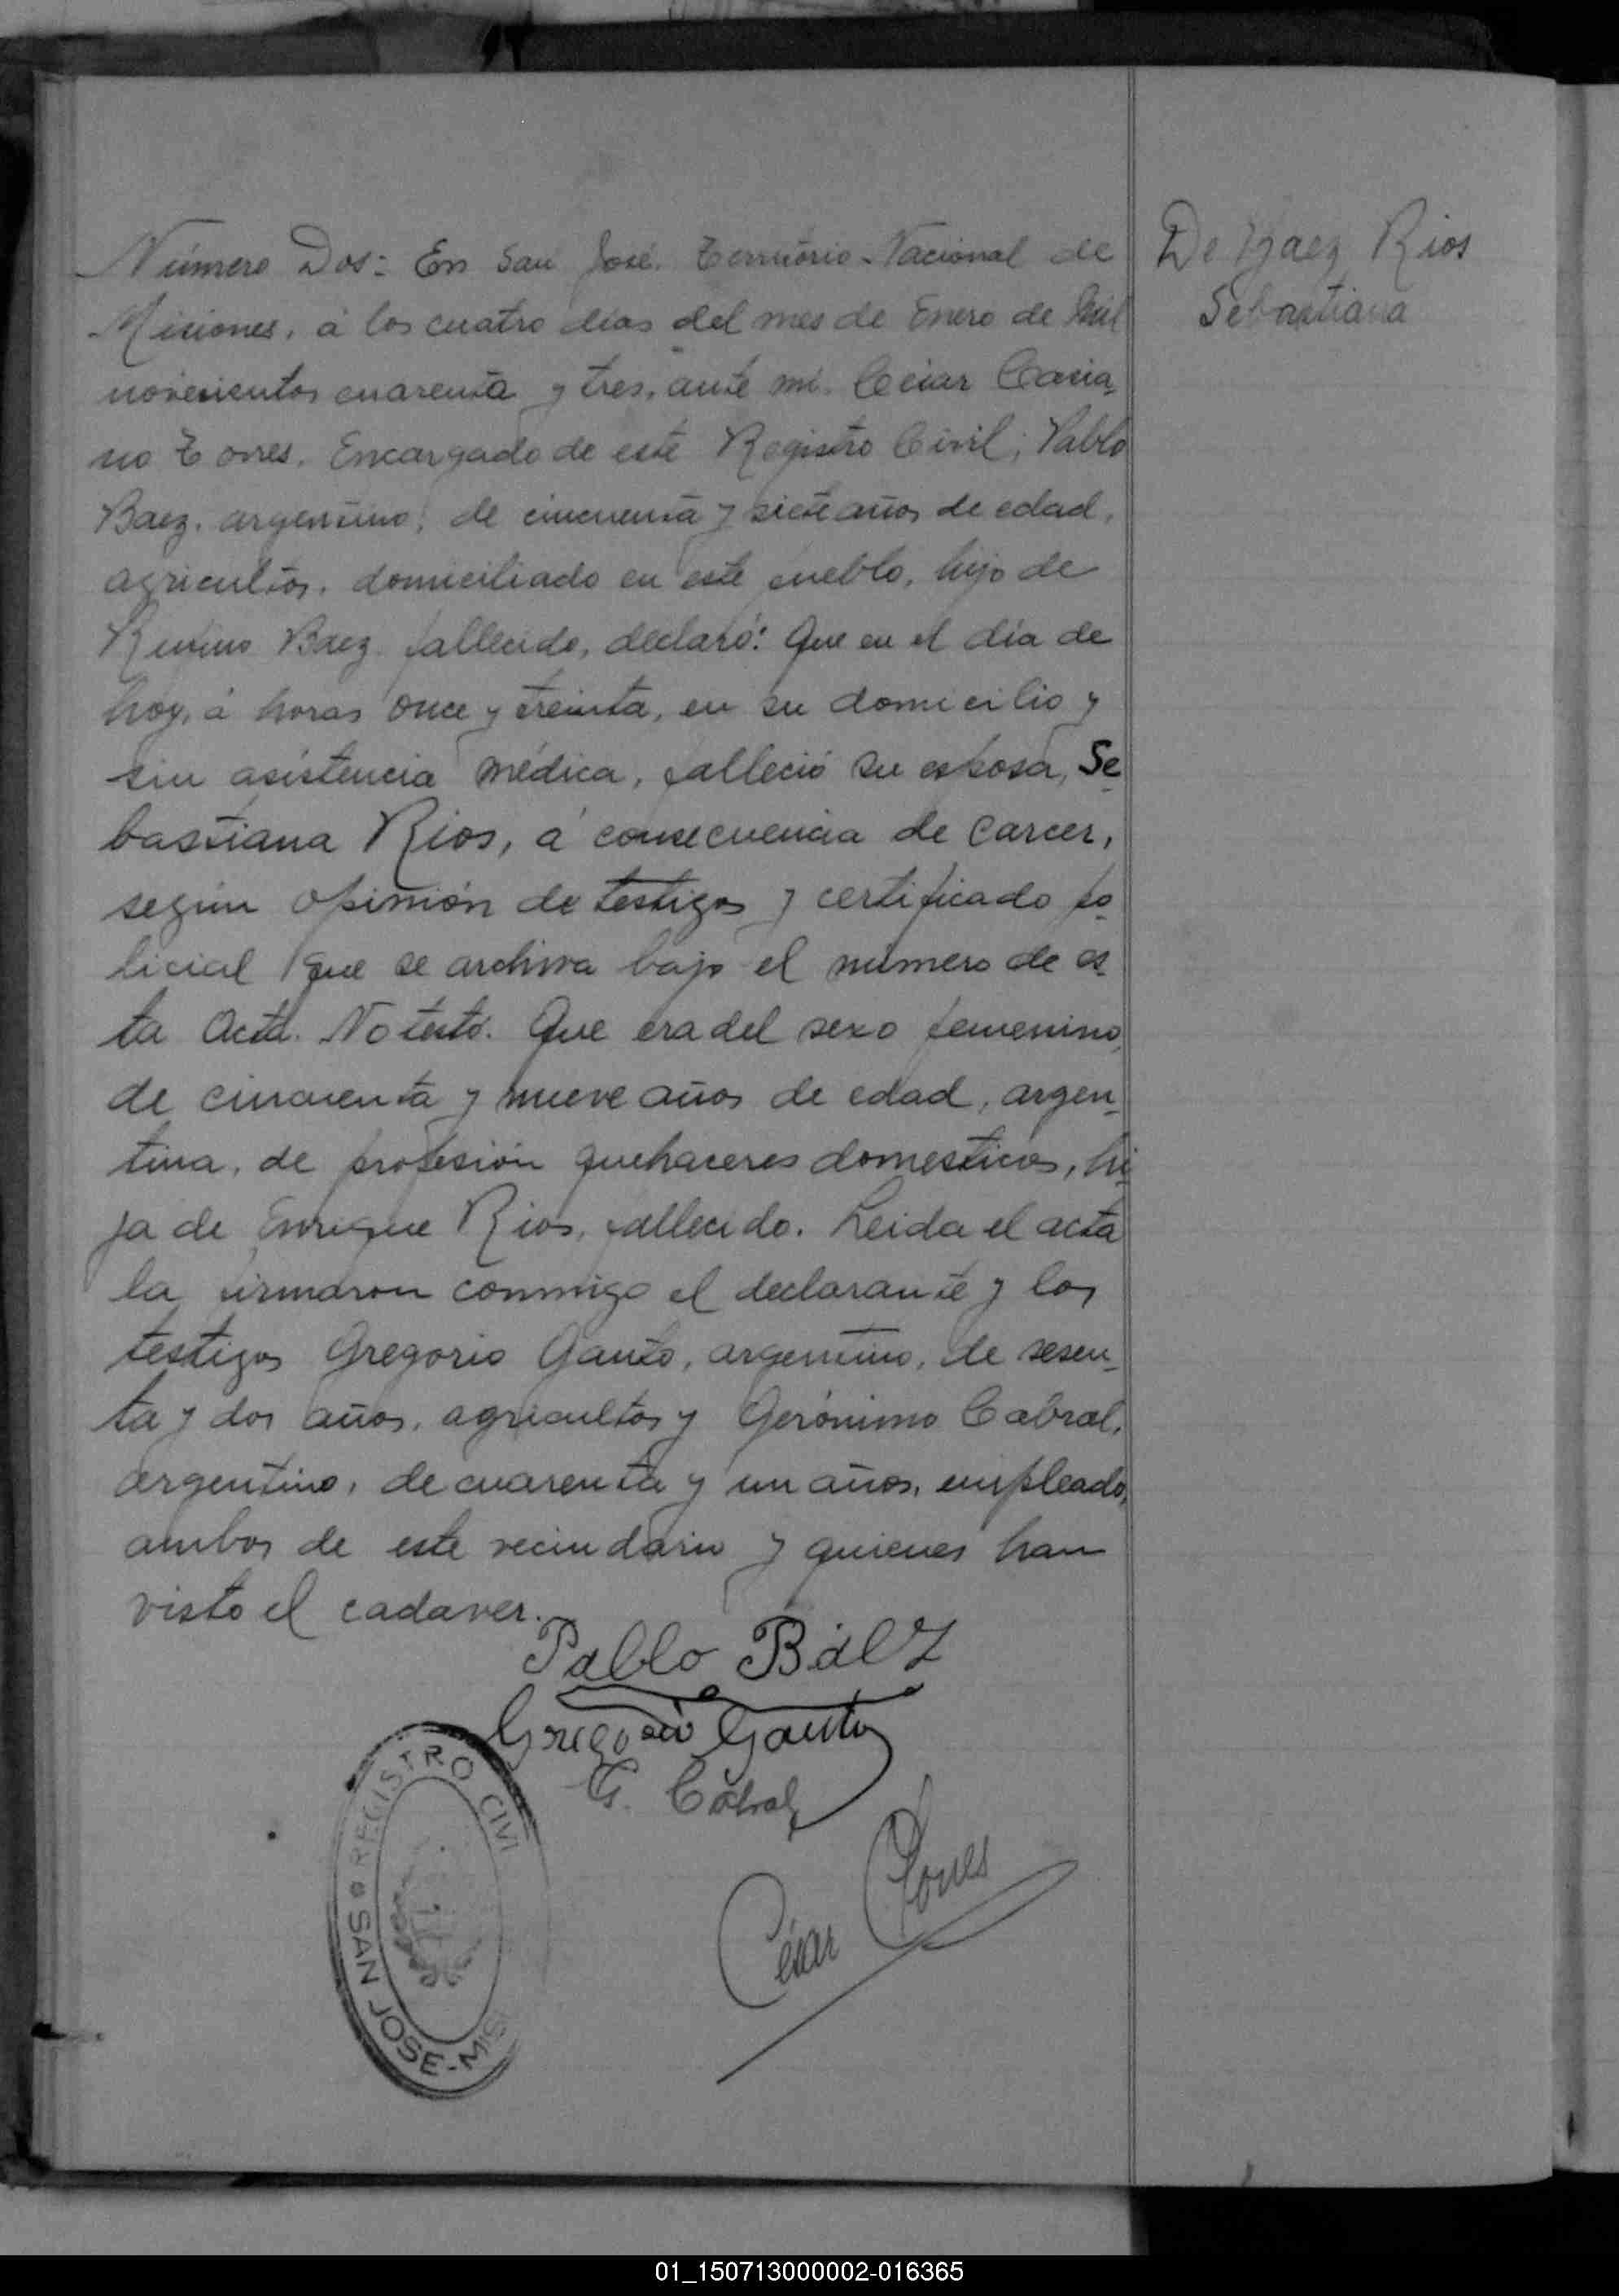 De Baez Rios
Sebastiana
Número Dos: En San José, Territorio Nacional de
Misiones, á los cuatro días del mes de Enero de Mil
novecientos cuarenta y tres, ante mí, César Casia-
no Torres, Encargado de este Registro Civil; Pablo
Baez, argentino, de cincuenta y siete años de edad,
agricultor, domiciliado en este pueblo, hijo de
Rufino Baez, fallecido, declaró: Que en el día de
hoy, á horas once y treinta, en su domicilio y
sin asistencia médica, falleció su esposa, Se-
bastiana Rios, á consecuencia de carcer,
según opinión de testigos y certificado po-
licial que se archiva bajo el número de es-
ta Acta. No testó. Que era del sexo femenino,
de cincuenta y nueve años de edad, argen-
tina, de profesión quehaceres domesticos, hi-
ja de Enrique Rios, fallecido. Leida el acta
la firmaron conmigo el declarante y los
testigos Gregorio Gauto, argentino, de sesen-
ta y dos años, agricultor y Gerónimo Cabral,
argentino, de cuarenta y un años, empleado,
ambos de este vecindario y quienes han
visto el cadaver.
Pablo Báez
Gregorio Gauto
G. Cabral
César Torres
REGISTRO CIVI
SAN JOSE-MIS
01_150713000002-016365